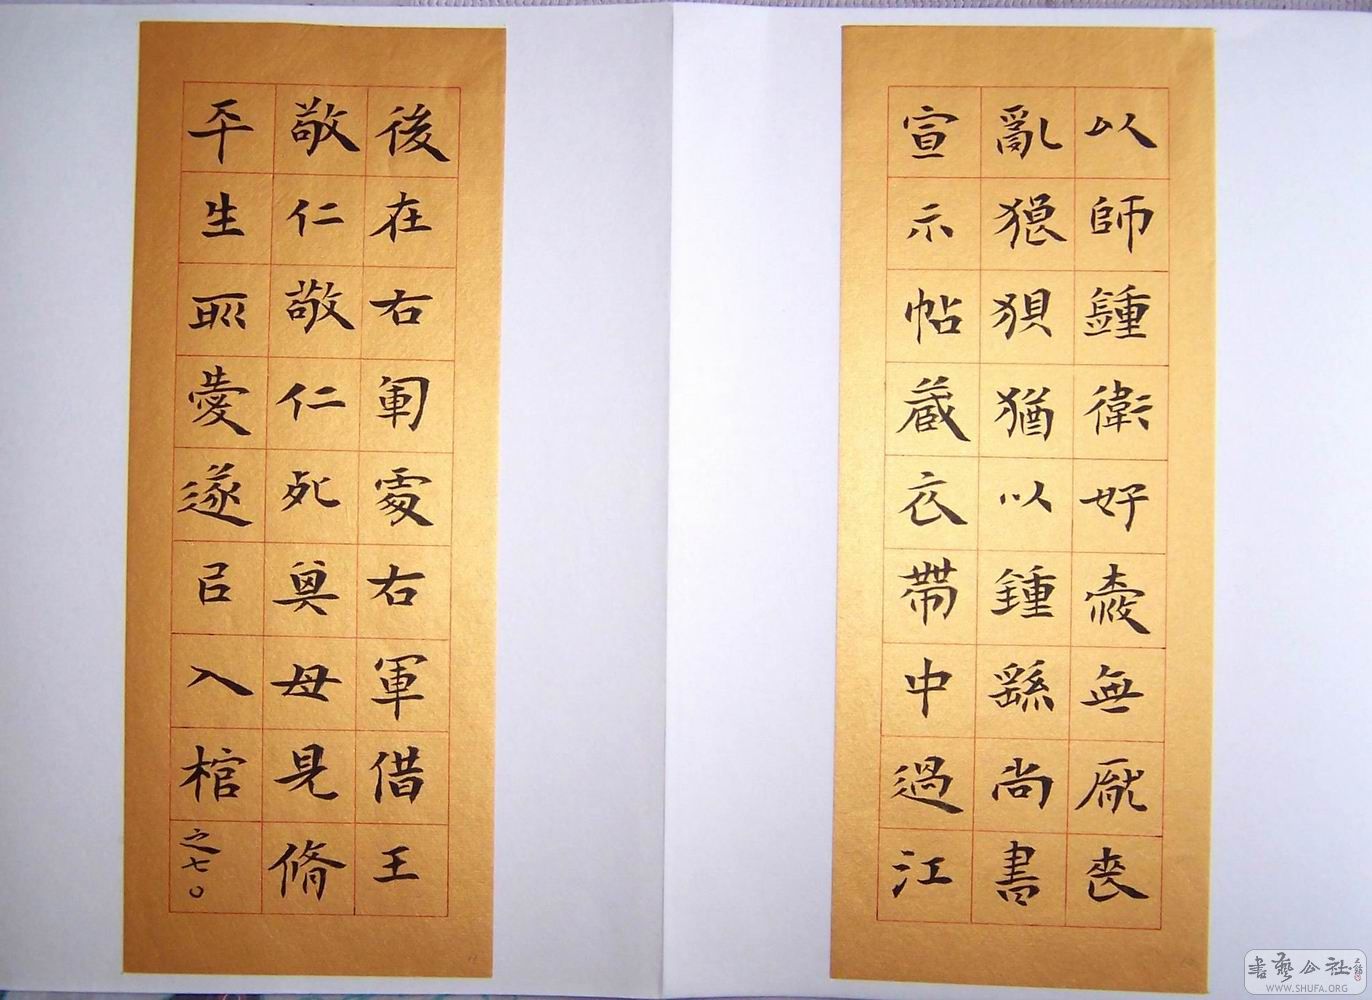 以師鍾衛好愛無厭喪
亂狼狽猶以鍾繇尚書
宣示帖藏衣帶中過江
後在右軍處右軍借王
敬仁敬仁死其母見脩
平生所愛遂以入棺之七〇
書藝公社
WWW.SHUFA.ORG